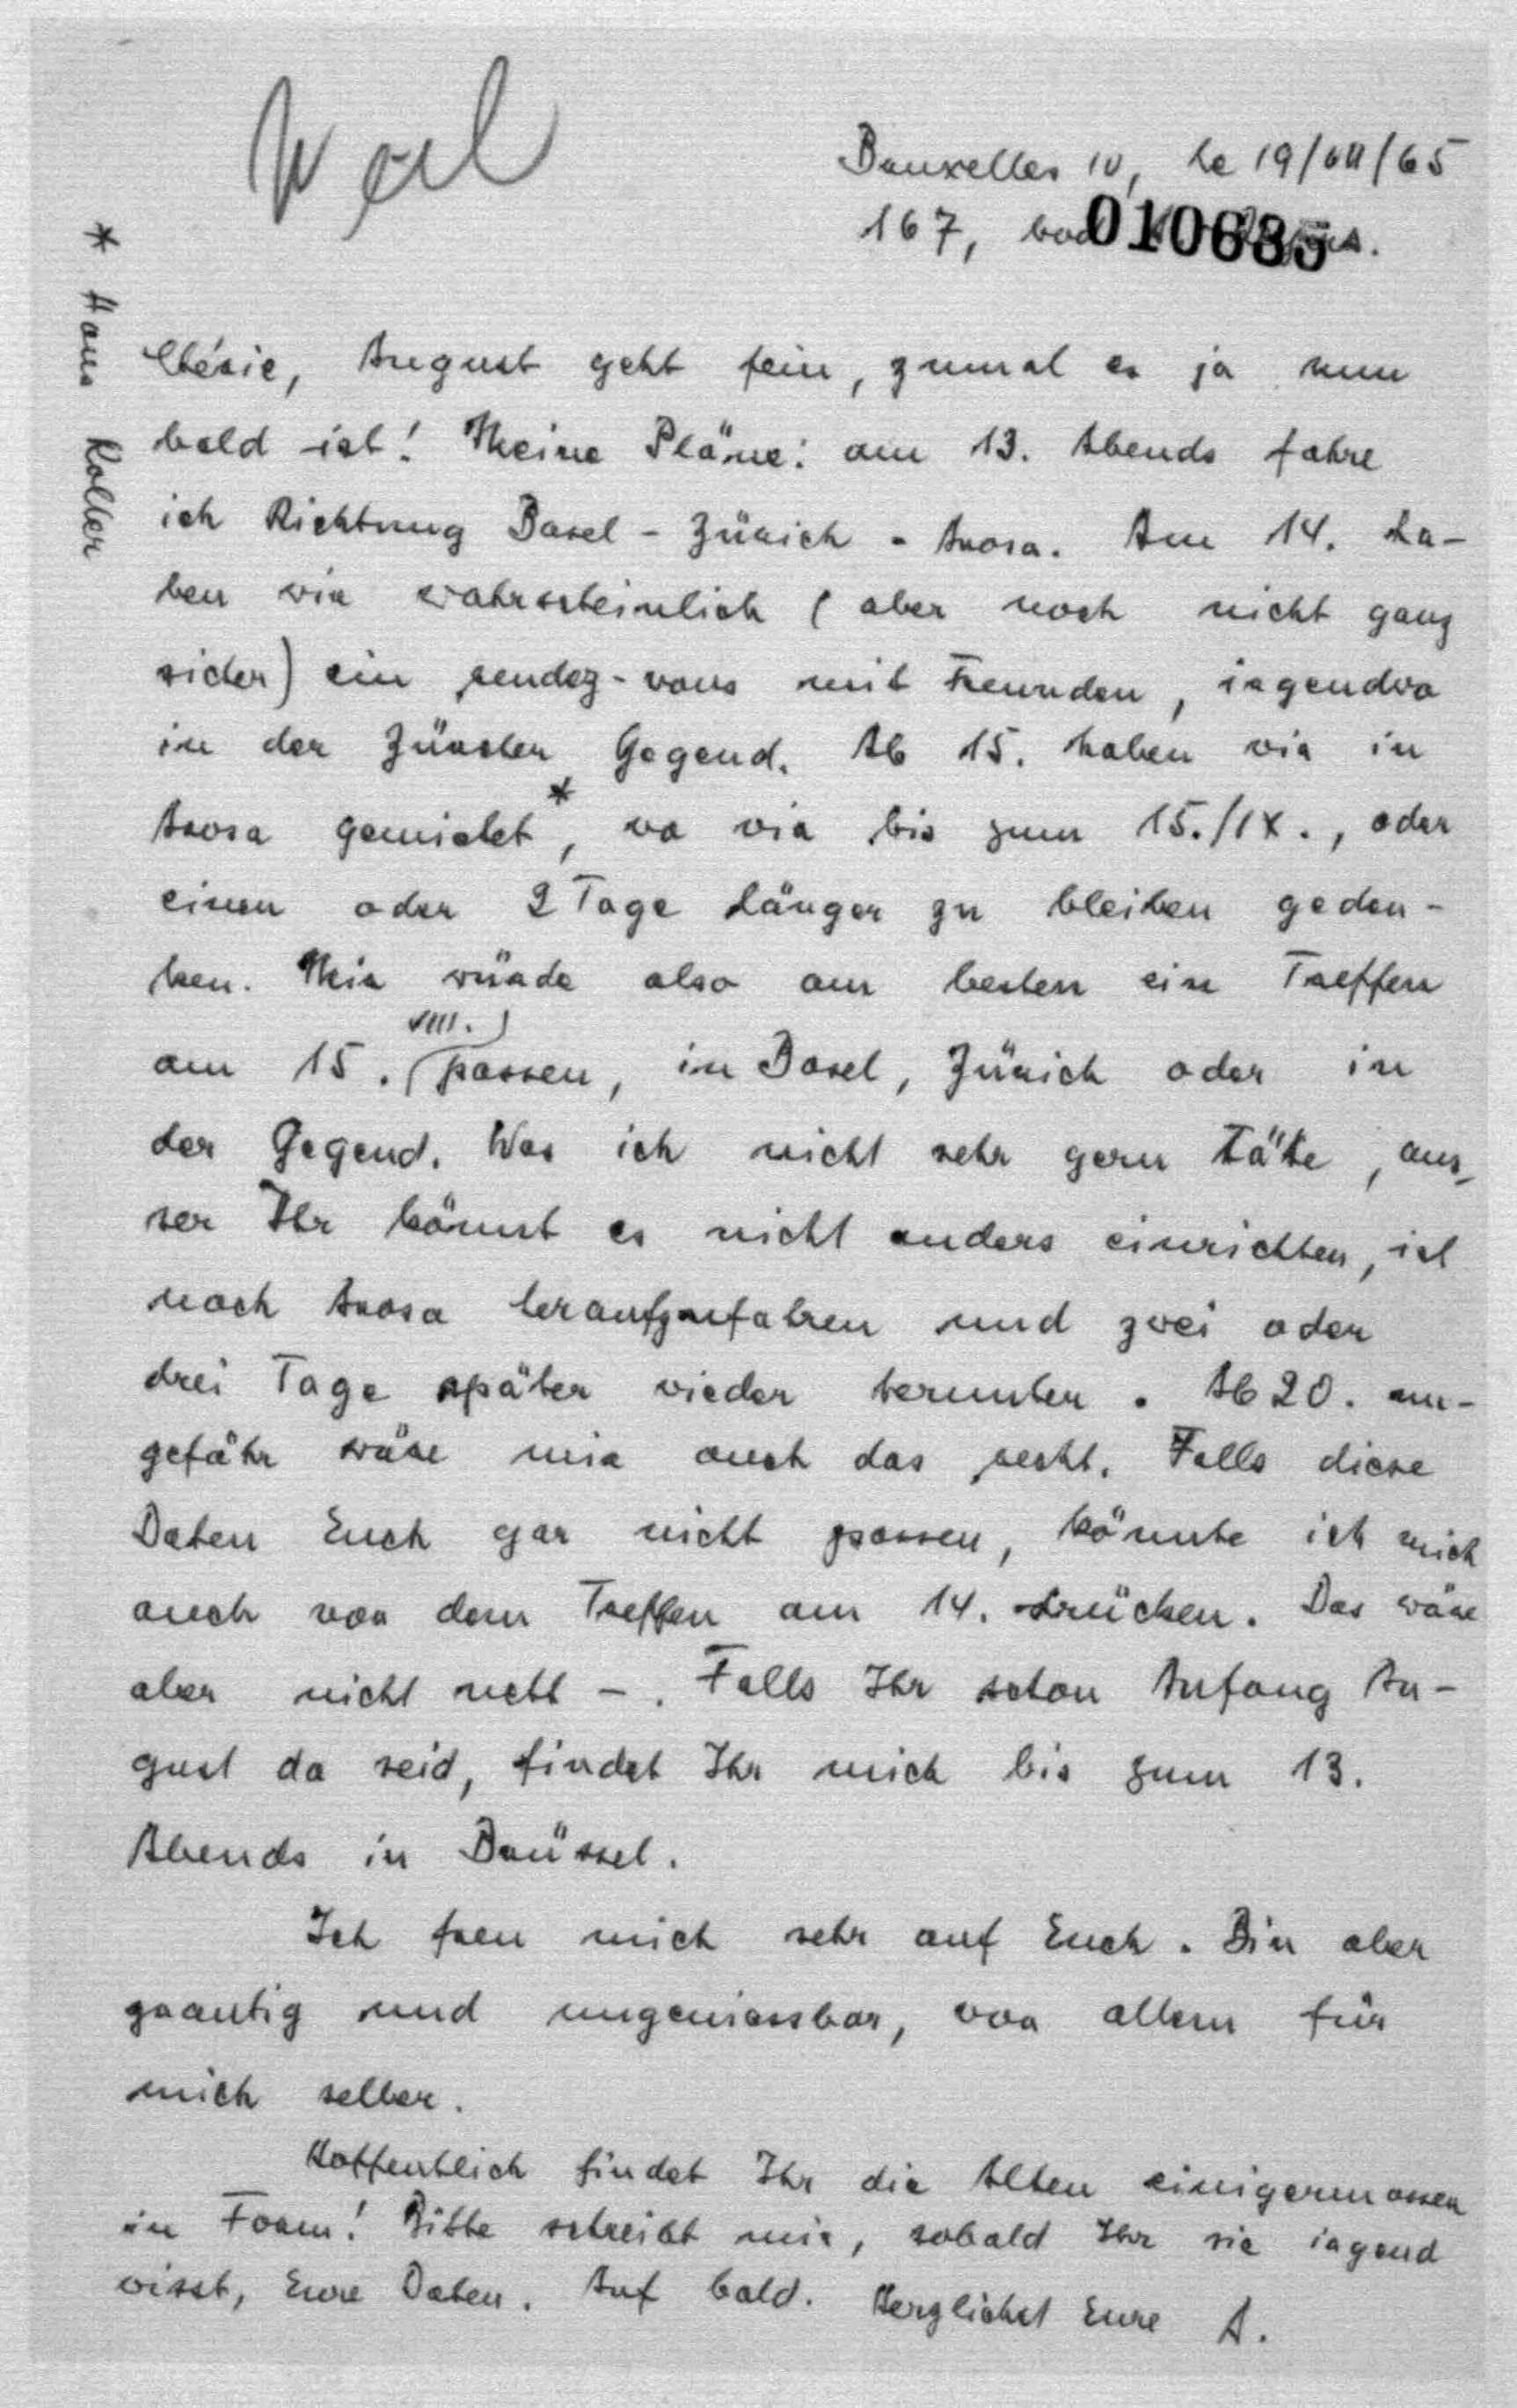 Bruxelles 10, le 19/VII/65
167, bvd
010635
* Haus Koller
Chérie, August geht fein, zumal es ja nun
bald ist! Meine Pläne: am 13. Abends fahre
ich Richtung Basel - Zürich - Arosa. Am 14. ha-
ben wir wahrscheinlich (aber noch nicht ganz
sicher) ein rendez-vous mit Freunden, irgendwo
in der Zürcher Gegend. Ab 15. haben wir in
Arosa gemietet*, wo wir bis zum 15./IX., oder
einen oder 2 Tage länger zu bleiben geden-
ken. Mir würde also am besten ein Treffen
am 15. VIII. passen, in Basel, Zürich oder in
der Gegend. Was ich nicht sehr gern täte, aus-
ser Ihr könnt es nicht anders einrichten, ist
nach Arosa heraufzufahren und zwei oder
drei Tage später wieder herunter. Ab 20. un-
gefähr wäre mir auch das recht. Falls diese
Daten Euch gar nicht passen, könnte ich mich
auch vor dem Treffen am 14. drücken. Das wäre
aber nicht nett -. Falls Ihr schon Anfang Au-
gust da seid, findet Ihr mich bis zum 13.
Abends in Brüssel.
Ich freu mich sehr auf Euch. Bin aber
grantig und ungeniessbar, vor allem für
mich selber.
Hoffentlich findet Ihr die Alten einigermassen
in Form! Bitte schreibt mir, sobald Ihr sie irgend
wisst, Eure Daten. Auf bald. Herzlichst Eure A.